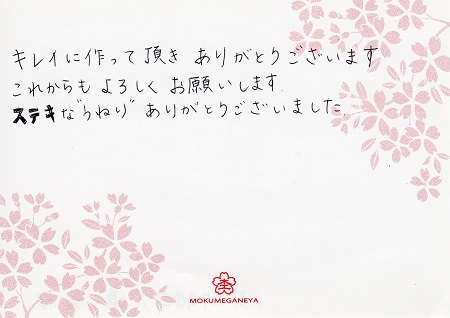 キレイに作って頂き ありがとうございます
これからも よろしく お願いします.
ステキな"うねり" ありがとうございました.
MOKUMEGANEYA